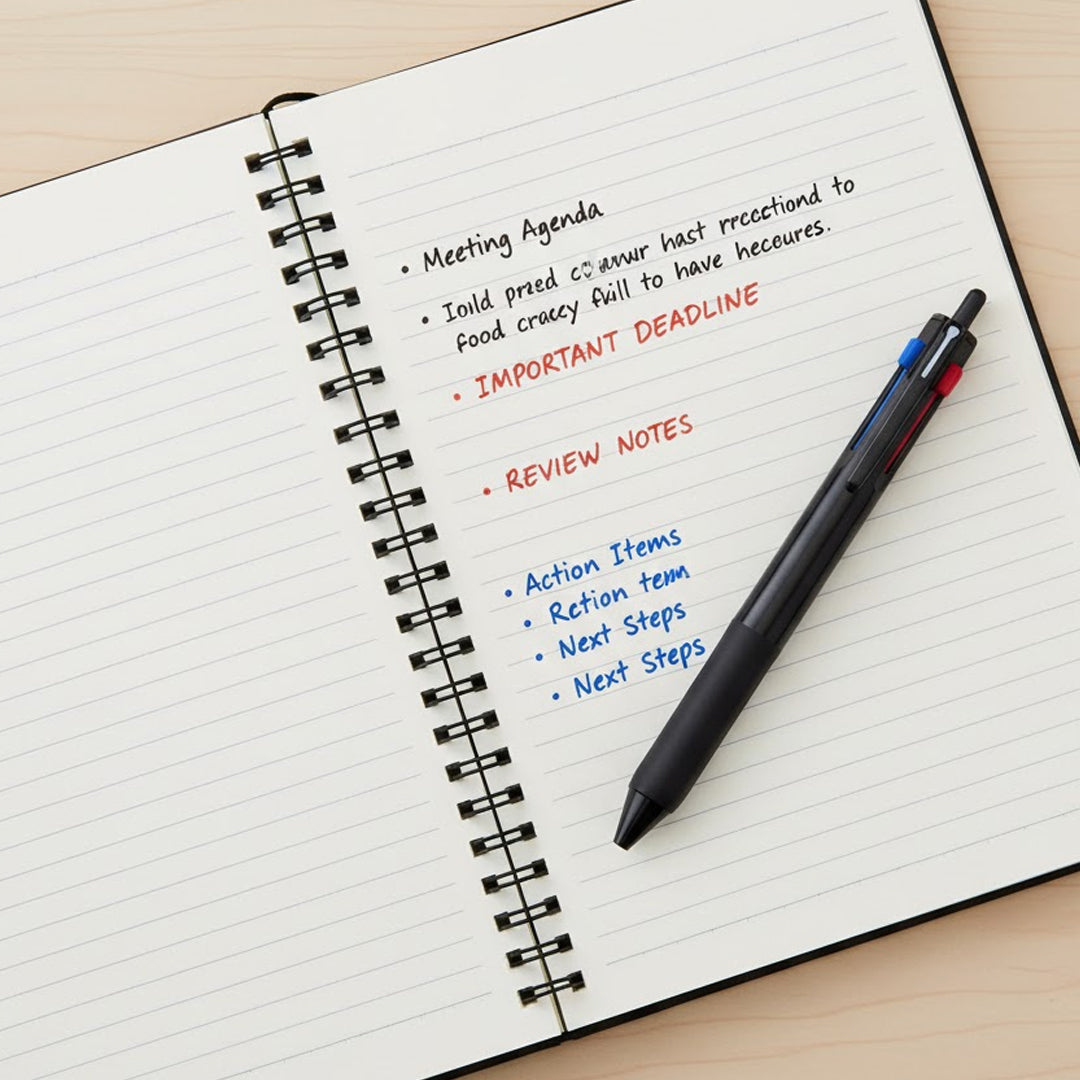 • Meeting Agenda
• Ioild pred hast to
food cracey to have heceures.
• IMPORTANT DEADLINE
• REVIEW NOTES
• Action Items
• Rction
• Next Steps
• Next Steps